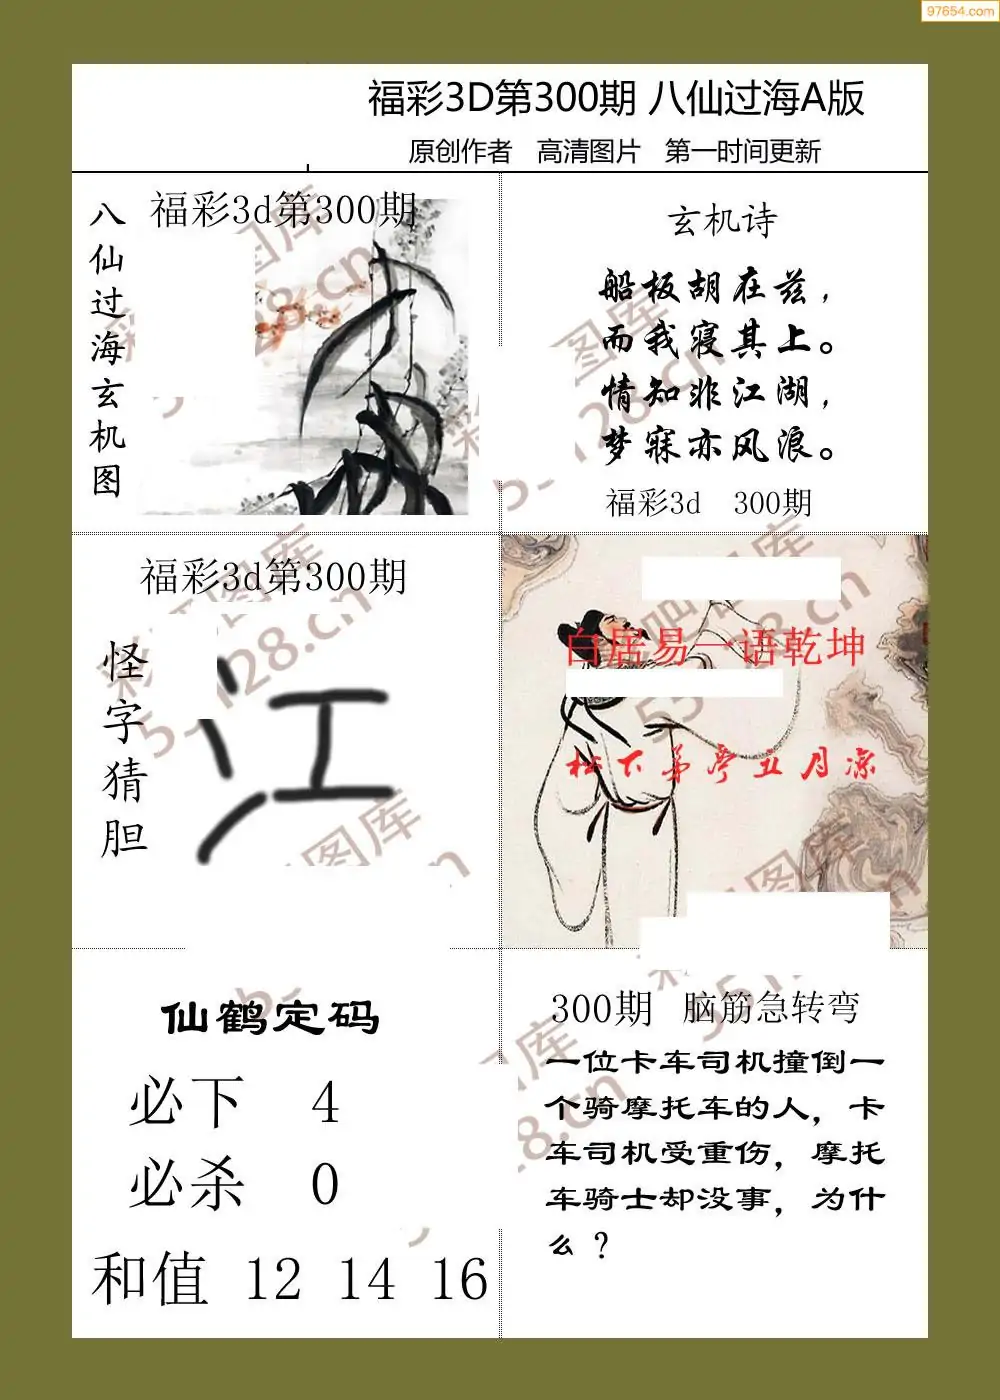 97654.com
福彩3D第300期 八仙过海A版
原创作者 高清图片 第一时间更新
八仙过海玄机图
福彩3d第300期
玄机诗
船板胡在兹，
而我寝其上。
情知非江湖，
梦寐亦风浪。
福彩3d 300期
福彩3d第300期
怪字猜胆
江
白居易一语乾坤
松下茅亭五月凉
仙鹤定码
必下 4
必杀 0
和值 12 14 16
300期 脑筋急转弯
一位卡车司机撞倒一
个骑摩托车的人，卡
车司机受重伤，摩托
车骑士却没事，为什
么？